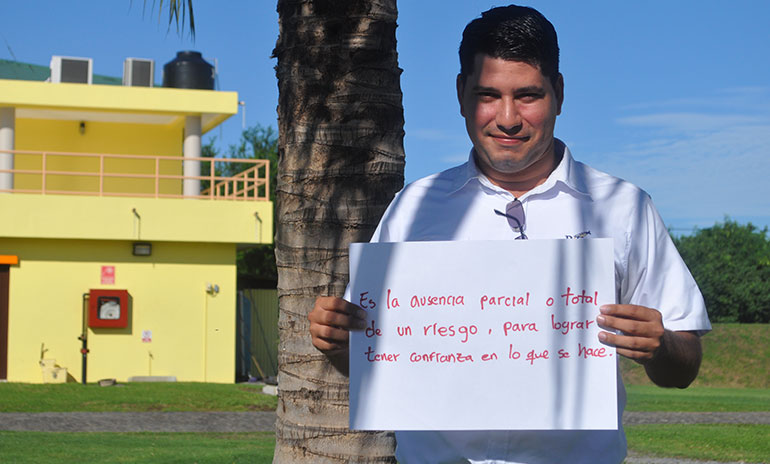 Es la ausencia parcial o total
de un riesgo, para lograr
tener confianza en lo que se hace.